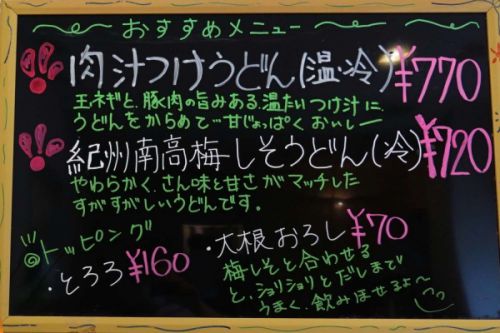 おすすめメニュー
肉汁つけうどん(温・冷)¥770
玉ネギと、豚肉の旨みある、温たいつけ汁に、
うどんをからめて…甘じょっぱくおいしー
紀州南高梅しそうどん(冷)¥720
やわらかく、さん味と甘さがマッチした
すがすがしいうどんです.
◎トッピング
・とろろ¥160
・大根おろし¥70
梅しそと合わせる
と、ショリショリとだしまで
うまく、飲みほせるよ〜